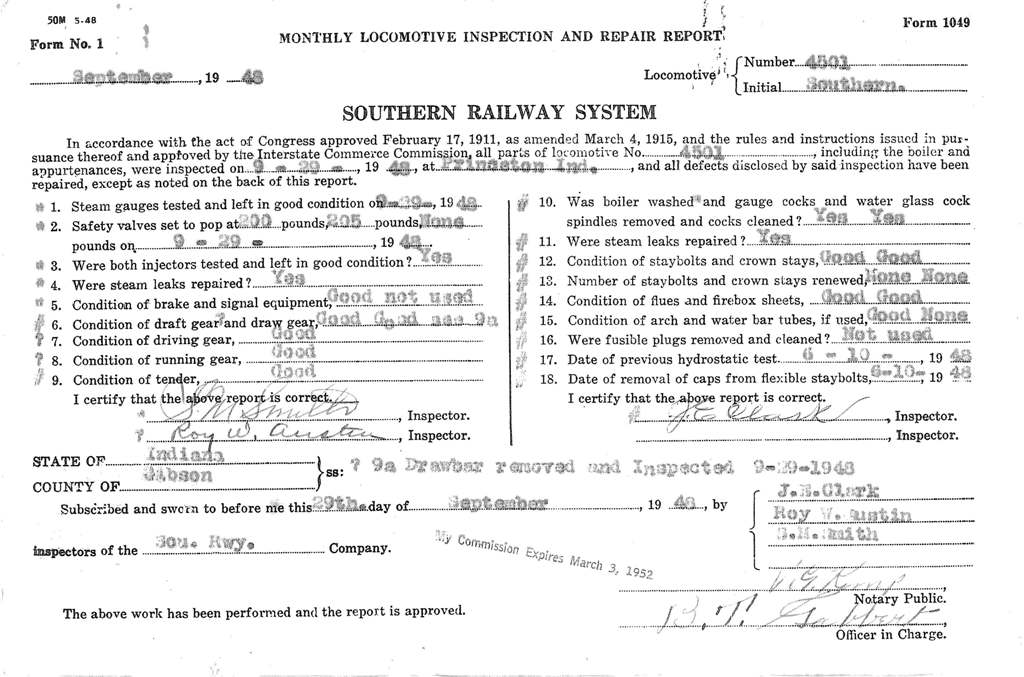 50M 5-48
Form 1049
Form No. 1
MONTHLY LOCOMOTIVE INSPECTION AND REPAIR REPORT
September, 19 48
Locomotive { Number 4501
Initial Southern.
SOUTHERN RAILWAY SYSTEM
In accordance with the act of Congress approved February 17, 1911, as amended March 4, 1915, and the rules and instructions issued in pur-
suance thereof and approved by the Interstate Commerce Commission, all parts of locomotive No. 4501, including the boiler and
appurtenances, were inspected on 9 - 29 -, 19 48, at Princeton Ind., and all defects disclosed by said inspection have been
repaired, except as noted on the back of this report.
# 1. Steam gauges tested and left in good condition on 9-29-, 19 48
# 2. Safety valves set to pop at 200 pounds, 205 pounds, None
pounds on 9 - 29 -, 19 48
# 3. Were both injectors tested and left in good condition? Yes
# 4. Were steam leaks repaired? Yes
# 5. Condition of brake and signal equipment, Good not used
# 6. Condition of draft gear ? and draw gear, Good Good see 9a
? 7. Condition of driving gear, Good
? 8. Condition of running gear, Good
# 9. Condition of tender, Good
I certify that the above report is correct.
S. M. Smith, Inspector.
? Roy W. Austin, Inspector.
# 10. Was boiler washed and gauge cocks and water glass cock
spindles removed and cocks cleaned? Yes Yes
# 11. Were steam leaks repaired? Yes
# 12. Condition of staybolts and crown stays, Good Good
# 13. Number of staybolts and crown stays renewed, None None
# 14. Condition of flues and firebox sheets, Good Good
# 15. Condition of arch and water bar tubes, if used, Good None
# 16. Were fusible plugs removed and cleaned? Not used
# 17. Date of previous hydrostatic test 6 - 10 -, 19 48
# 18. Date of removal of caps from flexible staybolts, 6-10-, 19 48
I certify that the above report is correct.
# J. E. Clark, Inspector.
, Inspector.
STATE OF Indiana
COUNTY OF Gibson
} ss: ? 9a Drawbar removed and Inspected 9-29-1948
Subscribed and sworn to before me this 29th day of September, 19 48, by
J.E.Clark
Roy W. Austin
S.M.Smith
inspectors of the Sou. Rwy. Company.
My Commission Expires March 3, 1952
Notary Public.
The above work has been performed and the report is approved.
B. T.
Officer in Charge.